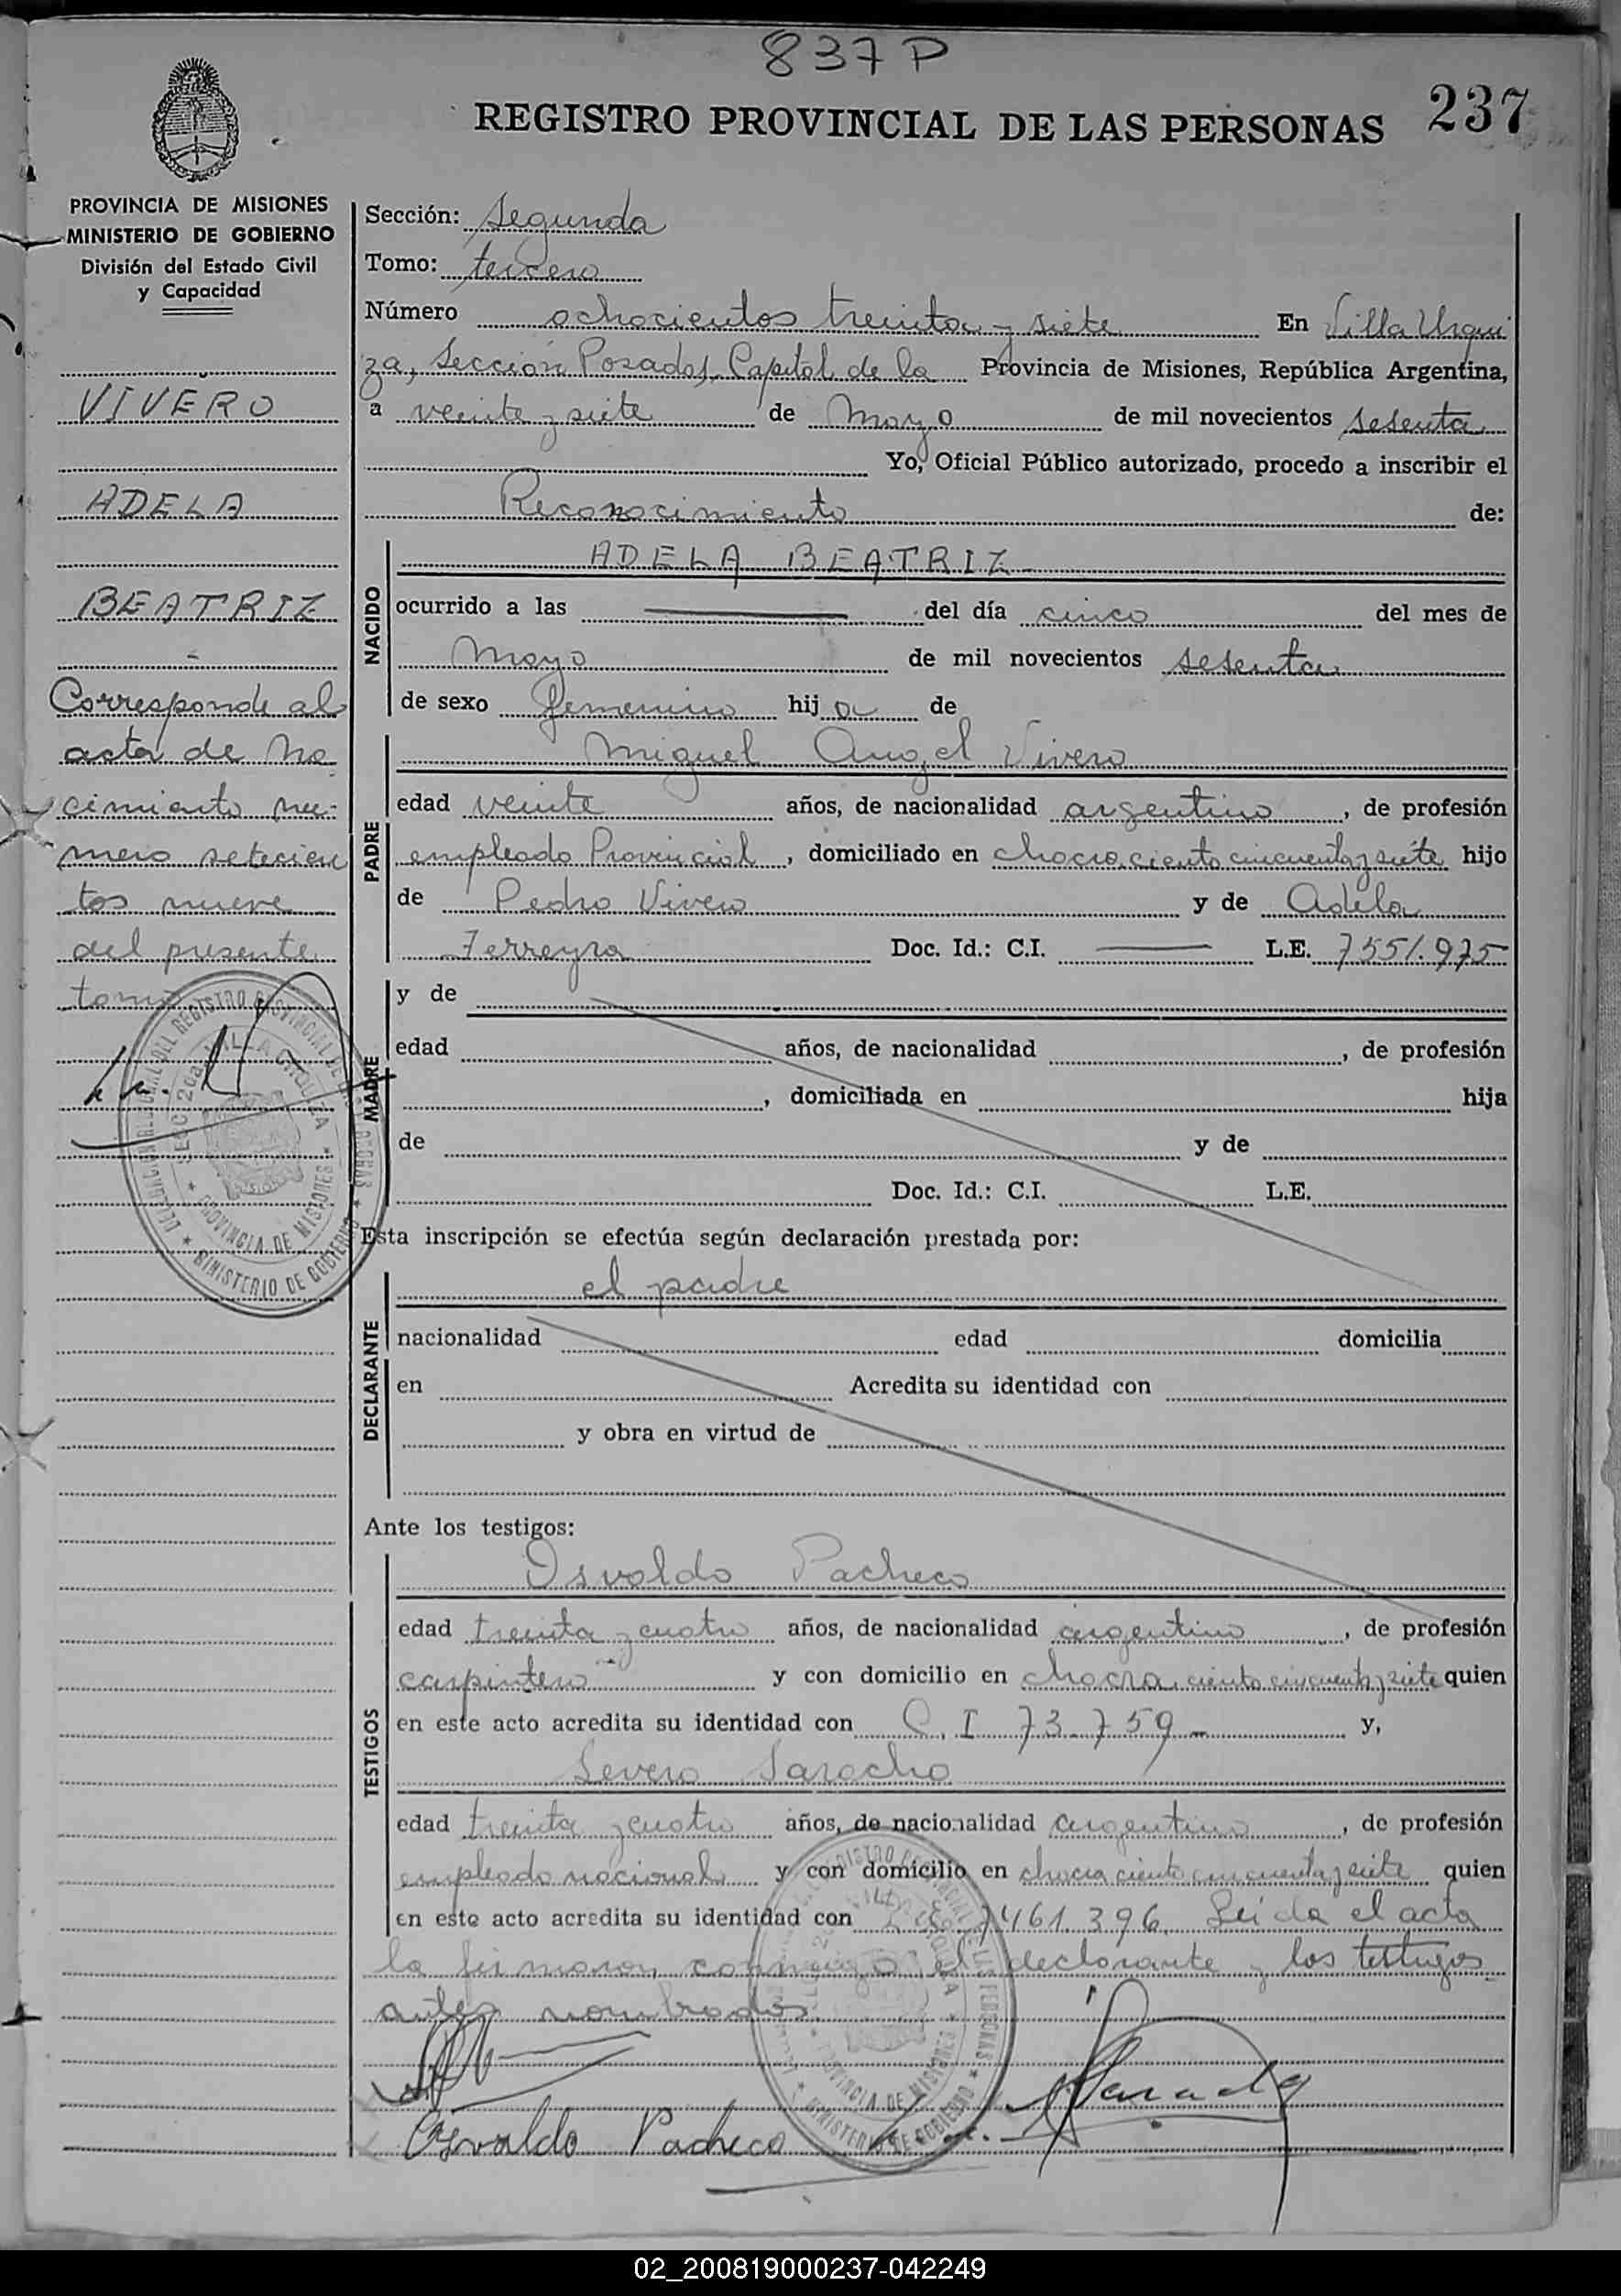 837 P
REGISTRO PROVINCIAL DE LAS PERSONAS 237
PROVINCIA DE MISIONES
MINISTERIO DE GOBIERNO
División del Estado Civil
y Capacidad
VIVERO
ADELA
BEATRIZ
Corresponde al
acta de Na
cimiento nu-
mero setecien
tos nueve
del presente
tomo
Sección: Segunda
Tomo: tercero
Número ochocientos treinta y siete En Villa Urqui
za, Sección Posadas, Capital de la Provincia de Misiones, República Argentina,
a veinte y siete de Mayo de mil novecientos sesenta
Yo, Oficial Público autorizado, procedo a inscribir el
Reconocimiento de:
NACIDO
ADELA BEATRIZ
ocurrido a las del día cinco del mes de
Mayo de mil novecientos sesenta
de sexo femenino hija de
PADRE
Miguel Angel Vivero
edad veinte años, de nacionalidad argentino, de profesión
empleado Provincial, domiciliado en chacra ciento cincuenta y siete hijo
de Pedro Vivero y de Adela
Ferreyra Doc. Id.: C.I. L.E. 7551.975
MADRE
y de
edad años, de nacionalidad , de profesión
, domiciliada en hija
de y de
Doc. Id.: C.I. L.E.
Esta inscripción se efectúa según declaración prestada por:
DECLARANTE
el padre
nacionalidad edad domicilia
en Acredita su identidad con
y obra en virtud de
Ante los testigos:
TESTIGOS
Osvaldo Pacheco
edad treinta y cuatro años, de nacionalidad argentino, de profesión
carpintero y con domicilio en chacra ciento cincuenta y siete quien
en este acto acredita su identidad con C. I 73.759 - y,
Severo Saracho
edad treinta y cuatro años, de nacionalidad argentino, de profesión
empleado nacional y con domicilio en chacra ciento cincuenta y siete quien
en este acto acredita su identidad con L.E. 7461.396. Leida el acta
la firmaron conmigo el declarante y los testigos
antes nombrados.
Osvaldo Pacheco
02_200819000237-042249